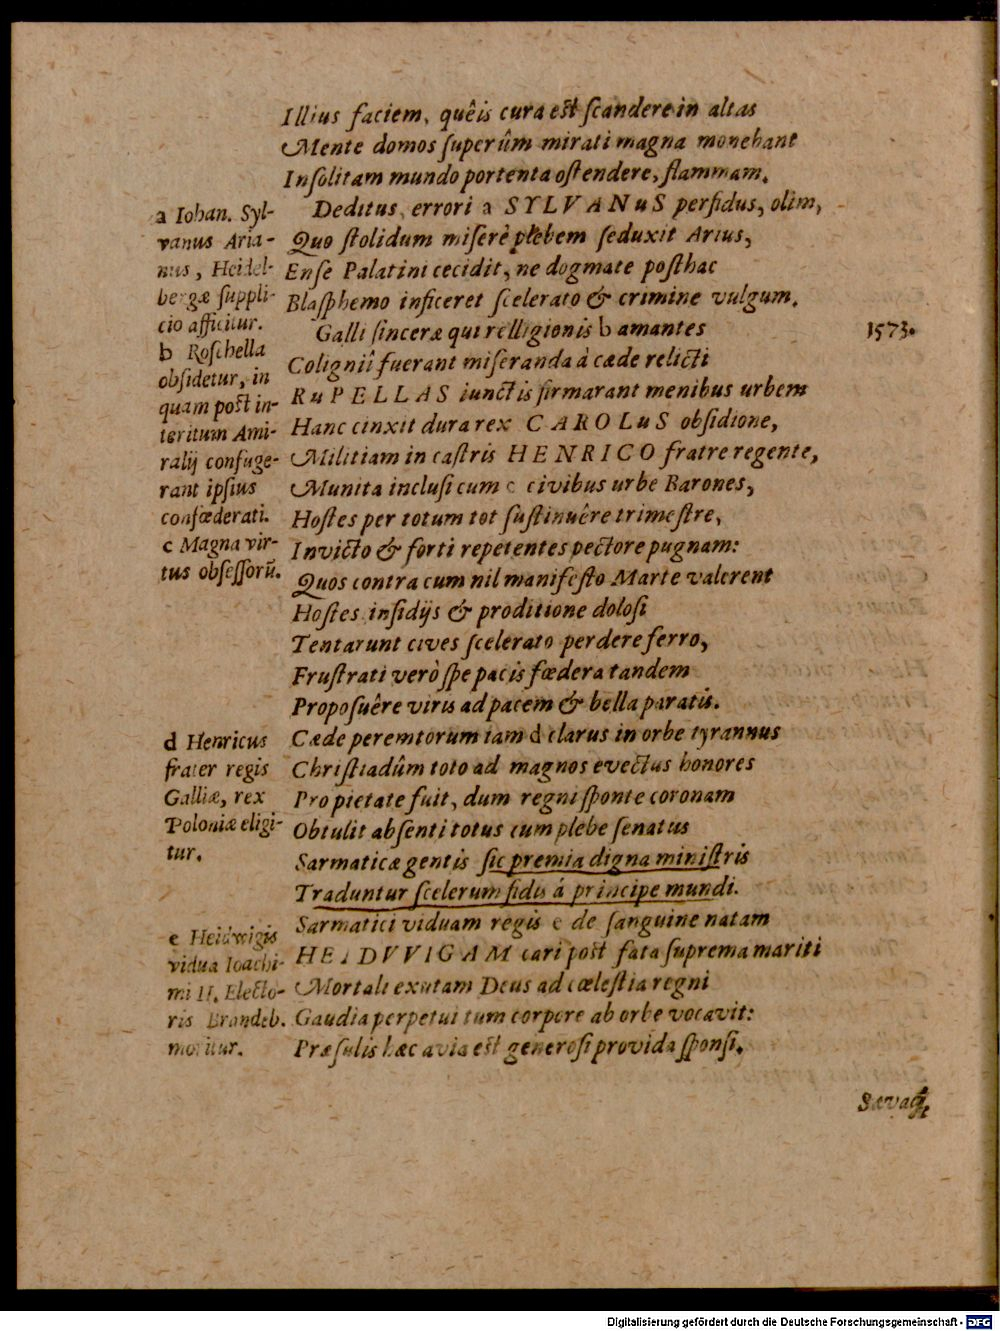 Illius faciem, quêis cura est ſcandere in altas
Mente domos ſuperûm mirati magna monebant
Inſolitam mundo portenta oſtendere, flammam.
Deditus errori a SYLVANuS perfidus, olim,
Quo ſtolidum miſerè plebem ſeduxit Arius,
Enſe Palatini cecidit, ne dogmate poſthac
Blaſphemo inficeret ſcelerato & crimine vulgum.
Galli ſinceræ qui relligionis b amantes
Colignii fuerant miſeranda à cæde relicti
RuPELLAS iunctis firmarant menibus urbem
Hanc cinxit dura rex CAROLuS obſidione,
Militiam in caſtris HENRICO fratre regente,
Munita incluſi cum c civibus urbe Barones,
Hoſtes per totum tot ſuſtinuêre trimeſtre,
Invicto & forti repetentes pectore pugnam:
Quos contra cum nil manifeſto Marte valerent
Hoſtes inſidijs & proditione doloſi
Tentarunt cives ſcelerato perdere ferro,
Fruſtrati verò ſpe pacis fœdera tandem
Propoſuêre viris ad pacem & bella paratis.
Cæde peremtorum iam d clarus in orbe tyrannus
Chriſtiadûm toto ad magnos evectus honores
Pro pietate fuit, dum regni ſponte coronam
Obtulit abſenti totus cum plebe ſenatus
Sarmaticæ gentis ſic premia digna miniſtris
Traduntur ſcelerum fidis á principe mundi.
Sarmatici viduam regis e de ſanguine natam
HEIDVVIGAM cari poſt fata ſuprema mariti
Mortali exutam Deus ad cæleſtia regni
Gaudia perpetui tum corpore ab orbe vocavit:
Præſulis hæc avia eſt generoſi provida ſponſi.
Sævaq́;
a Iohan. Syl-
vanus Aria-
nus, Heidel-
bergæ ſuppli-
cio afficitur.
b Roſchella
obſidetur, in
quam poſt in-
teritum Ami-
ralij confuge-
rant ipſius
confœderati.
c Magna vir-
tus obſeſſorū.
d Henricus
frater regis
Galliæ, rex
Poloniæ eligi-
tur.
e Heidwigis
vidua Ioachi-
mi II. Electo-
ris Brandeb.
moritur.
1573.
Digitalisierung gefördert durch die Deutsche Forschungsgemeinschaft - DFG